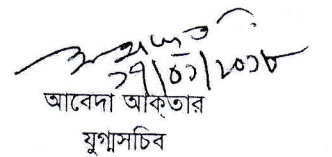 ১৭/০১/২০১৮
আবেদা আক্তার
যুগ্মসচিব